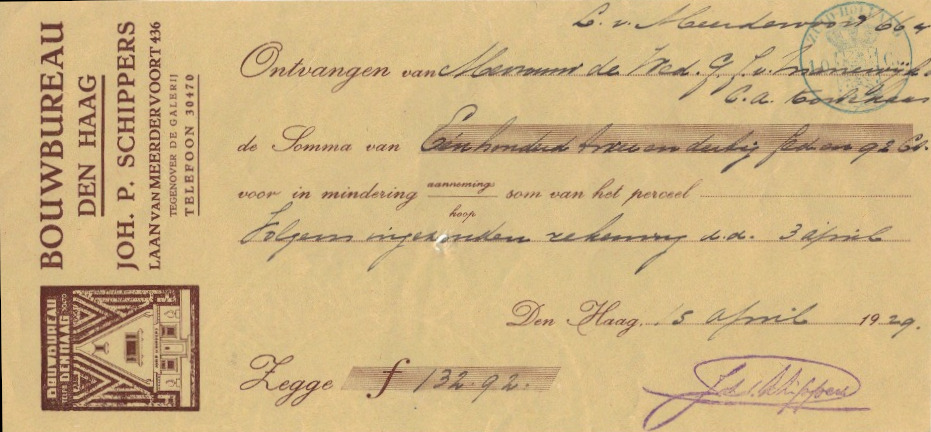 BOUWBUREAU
DEN HAAG
JOH. P. SCHIPPERS
LAAN VAN MEERDERVOORT 436
TEGENOVER DE GALERIJ
TELEFOON 30470
BOUWBUREAU
DEN HAAG
L. v. Meerdervoort
Ontvangen van Mevrouw de Wed. G. J. v.
C. a.
de Somma van Eénhonderd twee en dertig gld en 92 Ct.
voor in mindering aanneming/koop som van het perceel
Volgens ingezonden rekening d.d. 3 april
Den Haag, 15 April 1929.
Zegge ƒ 132.92.
Joh. P. Schippers